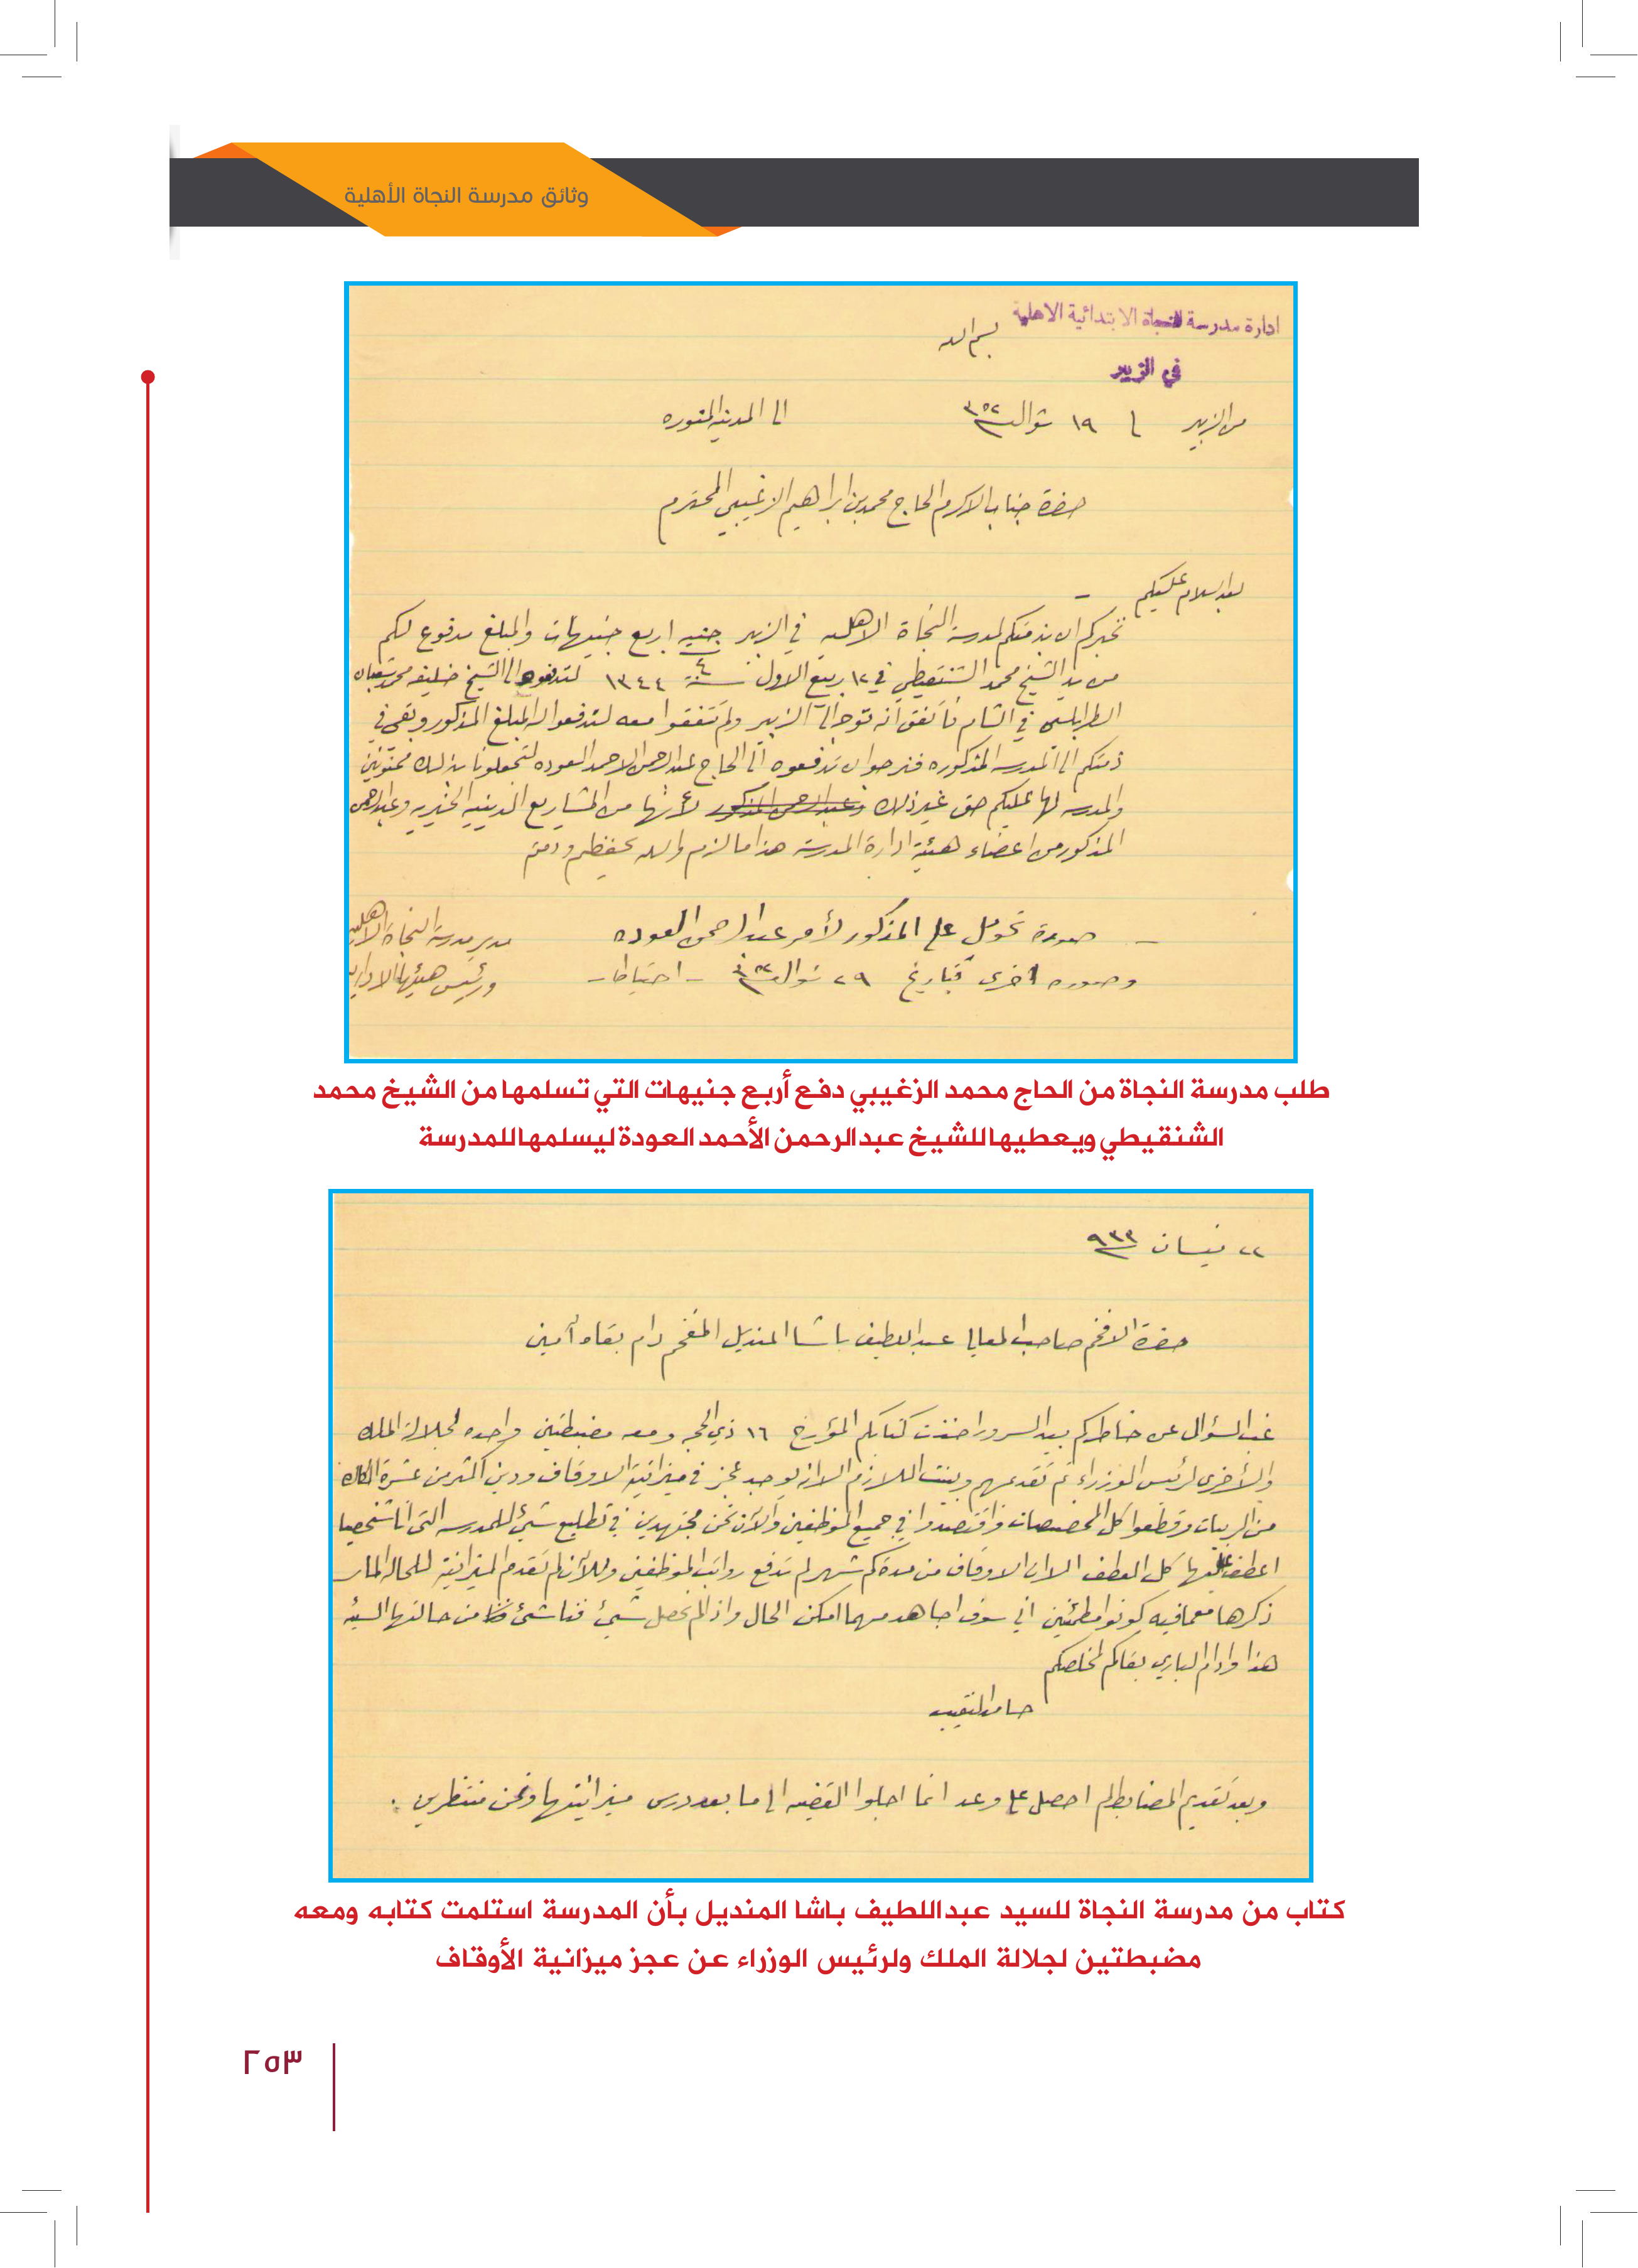 وثائق مدرسة النجاة الأهلية
ادارة مدرسة النجاة الابتدائية الاهلية
بسم الله
في الزبير
من الزبير ١٩ شوال ٣٥٢ الى المدينه المنوره
حضرة جناب الاكرم الحاج محمد بن ابراهيم الزغيبي المحترم
بعد السلام عليكم –
نخبركم ان بذمتكم لمدرسة النجاة الاهليه في الزبير جنيه اربع جنيهات والمبلغ مدفوع لكم
٤
من يد الشيخ محمد الشنقيطي في ١٢ ربيع الاول سنة ١٣٤٤ لتدفعوه الى الشيخ خليفه محمد شعبان
الطرابلسي في الشام فاتفق أنه توجه الى الزبير ولم تتفقوا معه لتدفعوا له المبلغ المذكور وبقي في
ذمتكم الى المدرسه المذكوره فنرجوا ان تدفعوه الى الحاج عبدالرحمن الاحمد العوده لتجعلونا بذلك ممنونين
والمدرسه لها عليكم حق غير ذلك وعبدالرحمن المذكور لأنها من المشاريع الدينيه الخيريه وعبدالرحمن
المذكور من اعضاء هيئة ادارة المدرسة هذا ما لزم والله يحفظكم ودمتم
– صورة تحويل على المذكور لأمر عبدالرحمن العوده
وصوره اخرى بتاريخ ٢٩ شوال ٣٥٢ – احتياطا –
مدير مدرسة النجاة الاهليه
ورئيس هيئتها الاداريه
طلب مدرسة النجاة من الحاج محمد الزغيبي دفع أربع جنيهات التي تسلمها من الشيخ محمد
الشنقيطي ويعطيها للشيخ عبدالرحمن الأحمد العودة ليسلمها للمدرسة
٢٢ نيسان ٩٣٣
حضرة الافخم صاحب المعالي عبداللطيف باشا المنديل المفخم دام بقاه أمين
غب السؤال عن خاطركم بيد السرور اخذت كتابكم المؤرخ ١٦ ذي الحجه ومعه مضبطتين واحده لجلالة الملك
والأخرى لرئيس الوزراء تم تقديمهم وبينت اللازم الا انه يوجد عجز في ميزانية الاوقاف ودين اكثر من عشرة الكاك
من الربيات وقطعوا كل المخصصات واقتصدوا في جميع الموظفين والآن نحن مجتهدين في تطليع شيئ للمدرسه التي انا شخصيا
اعطف عليها كل العطف الا ان الاوقاف من مدة كم شهر لم تدفع رواتب الموظفين وللآن لم تقدم الميزانية للحاله المار
ذكرها معمافيه كونوا مطمئنين اني سوف اجاهد مهما امكن الحال واذا لم نحصل شيئ فناشئ من حالتها السيئه
هذا وادام الباري بقاكم لمخلصكم
حامد النقيب
وبعد تقديم المضابط لم احصل على وعد انما اجلوا القضيه الى ما بعد درس ميزانيتها ونحن منتظرين .
كتاب من مدرسة النجاة للسيد عبداللطيف باشا المنديل بأن المدرسة استلمت كتابه ومعه
مضبطتين لجلالة الملك ولرئيس الوزراء عن عجز ميزانية الأوقاف
٢٥٣